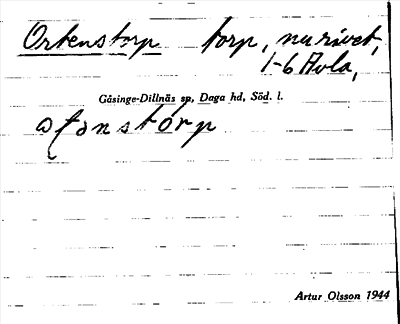 Orkenstorp torp, nu rivet,
1-6 Avla,
Gåsinge-Dillnäs sn, Daga hd, Söd. l.
Artur Olsson 1944